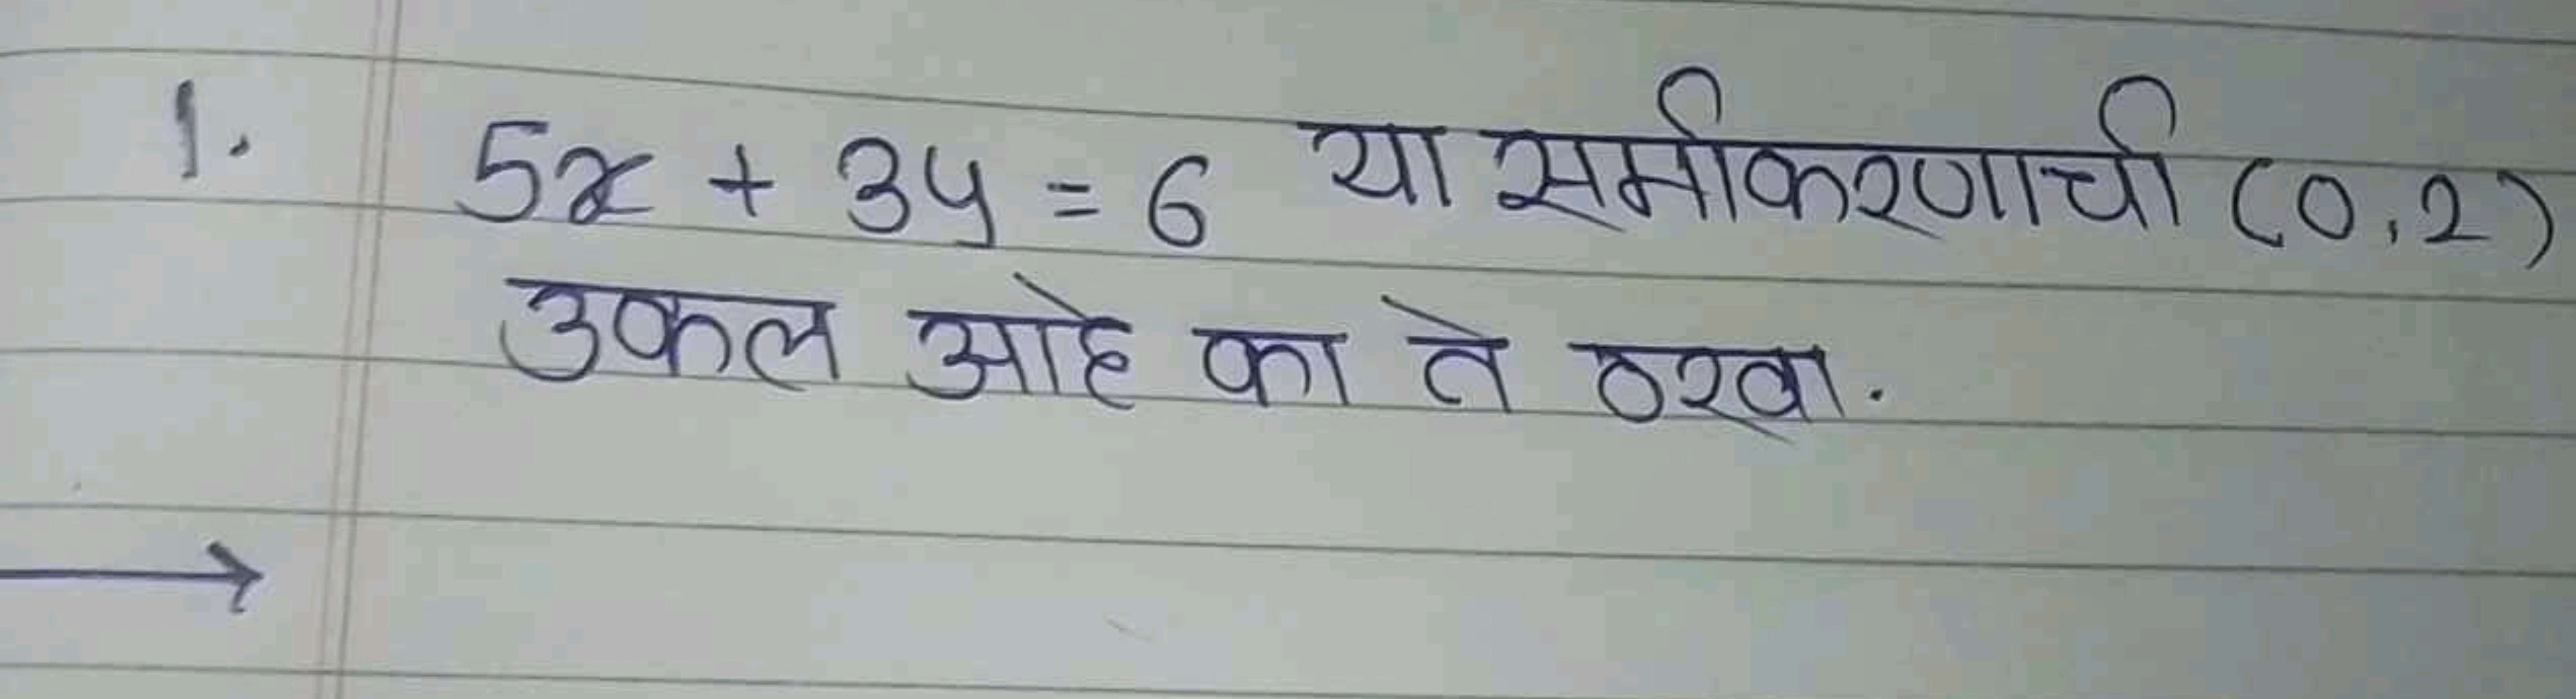 1. 5x + 3y = 6 या समीकरणाची (0,2)
उकल आहे का ते ठरवा.
→